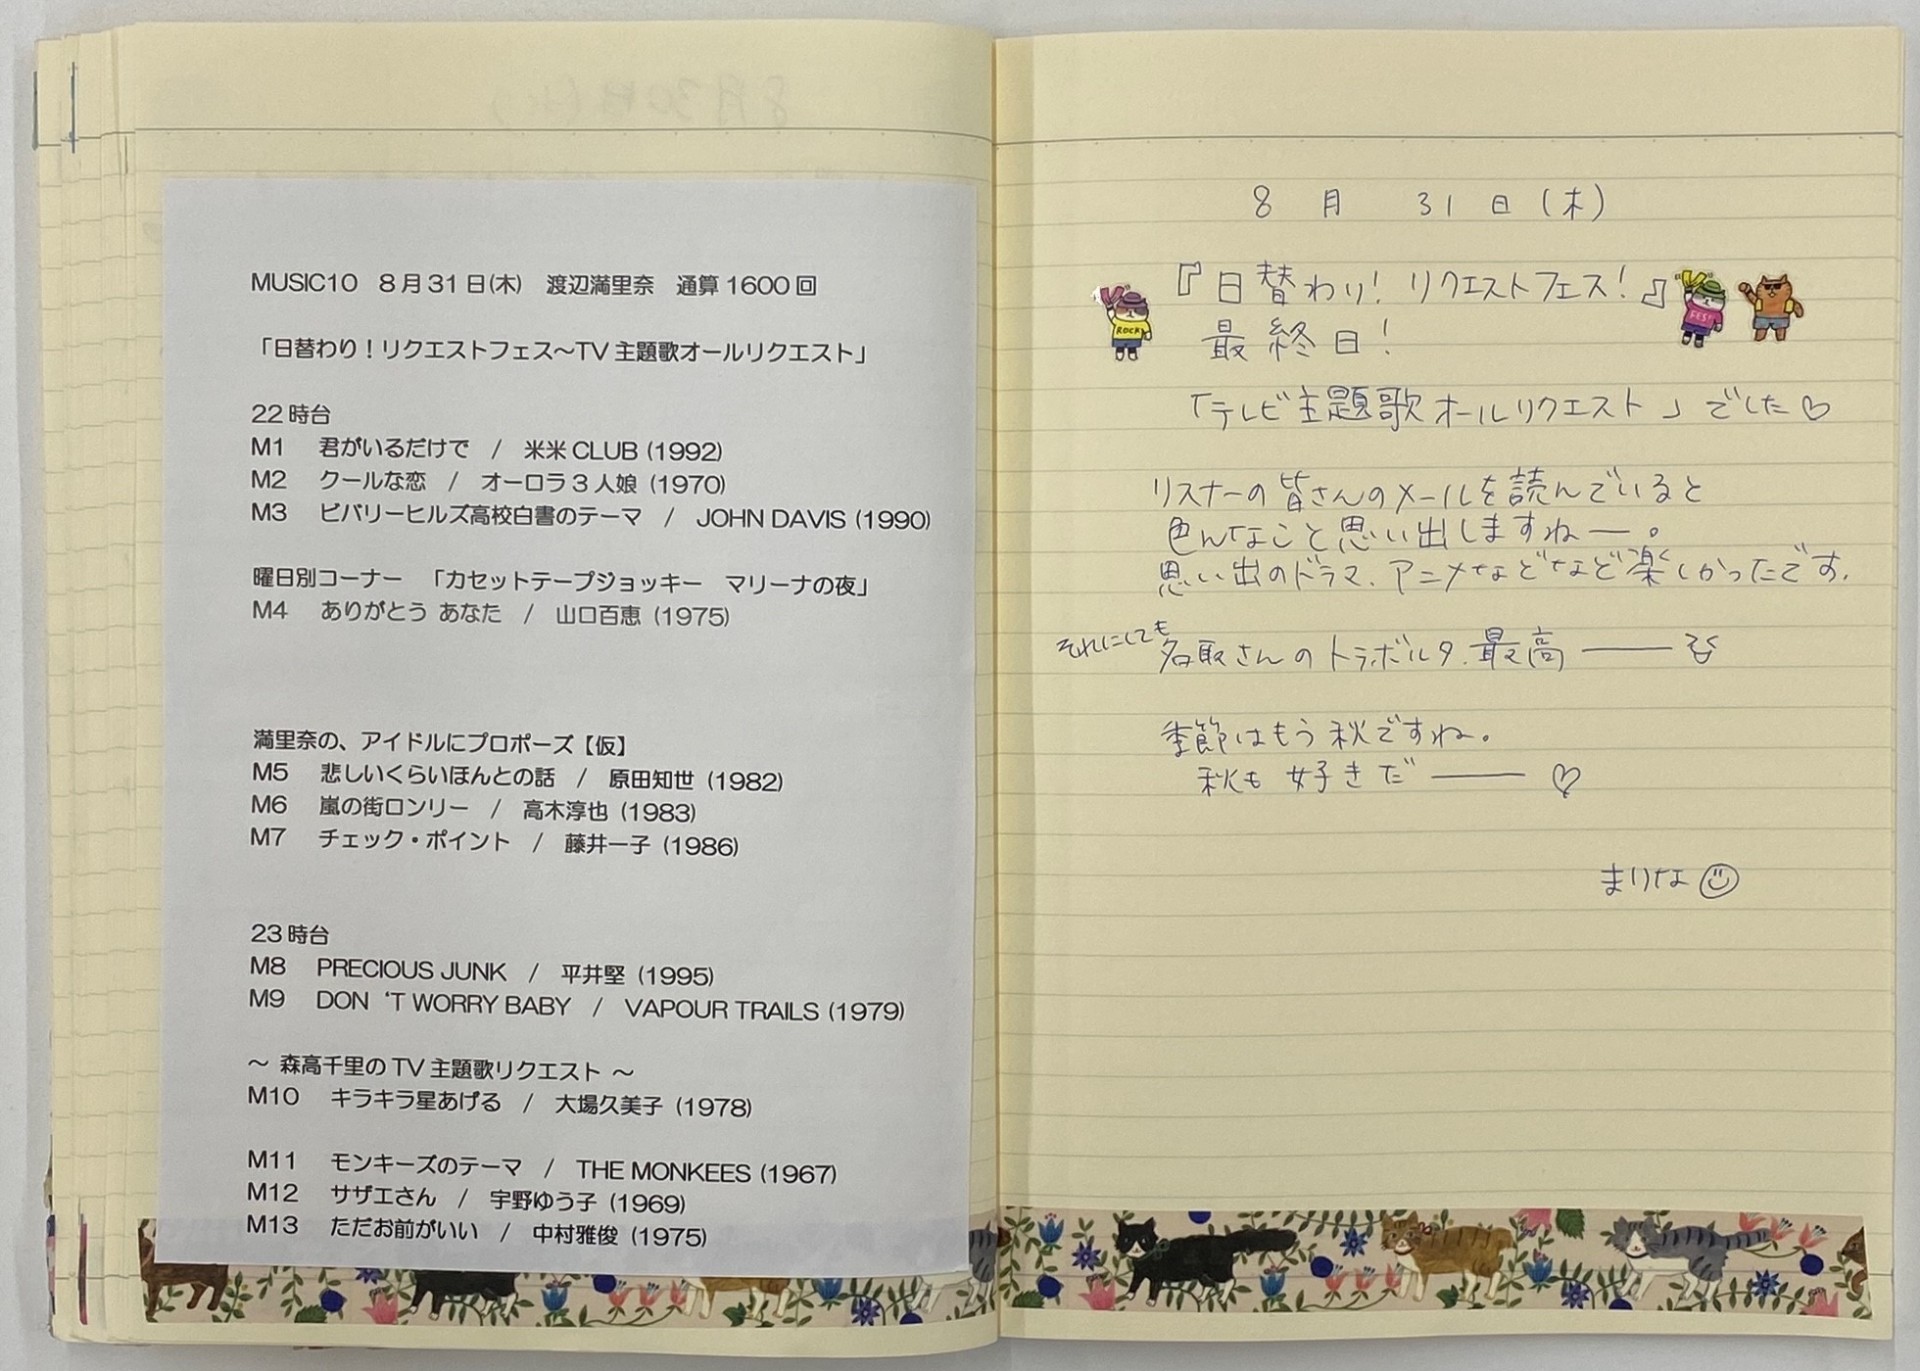 MUSIC10 8月31日(木) 渡辺満里奈 通算1600回
「日替わり！リクエストフェス～TV主題歌オールリクエスト」
22時台
M1 君がいるだけで / 米米CLUB (1992)
M2 クールな恋 / オーロラ3人娘 (1970)
M3 ビバリーヒルズ高校白書のテーマ / JOHN DAVIS (1990)
曜日別コーナー 「カセットテープジョッキー マリーナの夜」
M4 ありがとう あなた / 山口百恵 (1975)
満里奈の、アイドルにプロポーズ【仮】
M5 悲しいくらいほんとの話 / 原田知世 (1982)
M6 嵐の街ロンリー / 高木淳也 (1983)
M7 チェック・ポイント / 藤井一子 (1986)
23時台
M8 PRECIOUS JUNK / 平井堅 (1995)
M9 DON‘T WORRY BABY / VAPOUR TRAILS (1979)
～ 森高千里のTV主題歌リクエスト ～
M10 キラキラ星あげる / 大場久美子 (1978)
M11 モンキーズのテーマ / THE MONKEES (1967)
M12 サザエさん / 宇野ゆう子 (1969)
M13 ただお前がいい / 中村雅俊 (1975)
8月 31日(木)
『日替わり! リクエストフェス!』
最終日!
「テレビ主題歌オールリクエスト」でした♡
リスナーの皆さんのメールを読んでいると
色んなこと思い出しますねー。
思い出のドラマ、アニメなどなど楽しかったです。
それにしても名取さんのトラボルタ、最高——
季節はもう秋ですね。
秋も好きだ——♡
まりな☺
ROCK
FES!